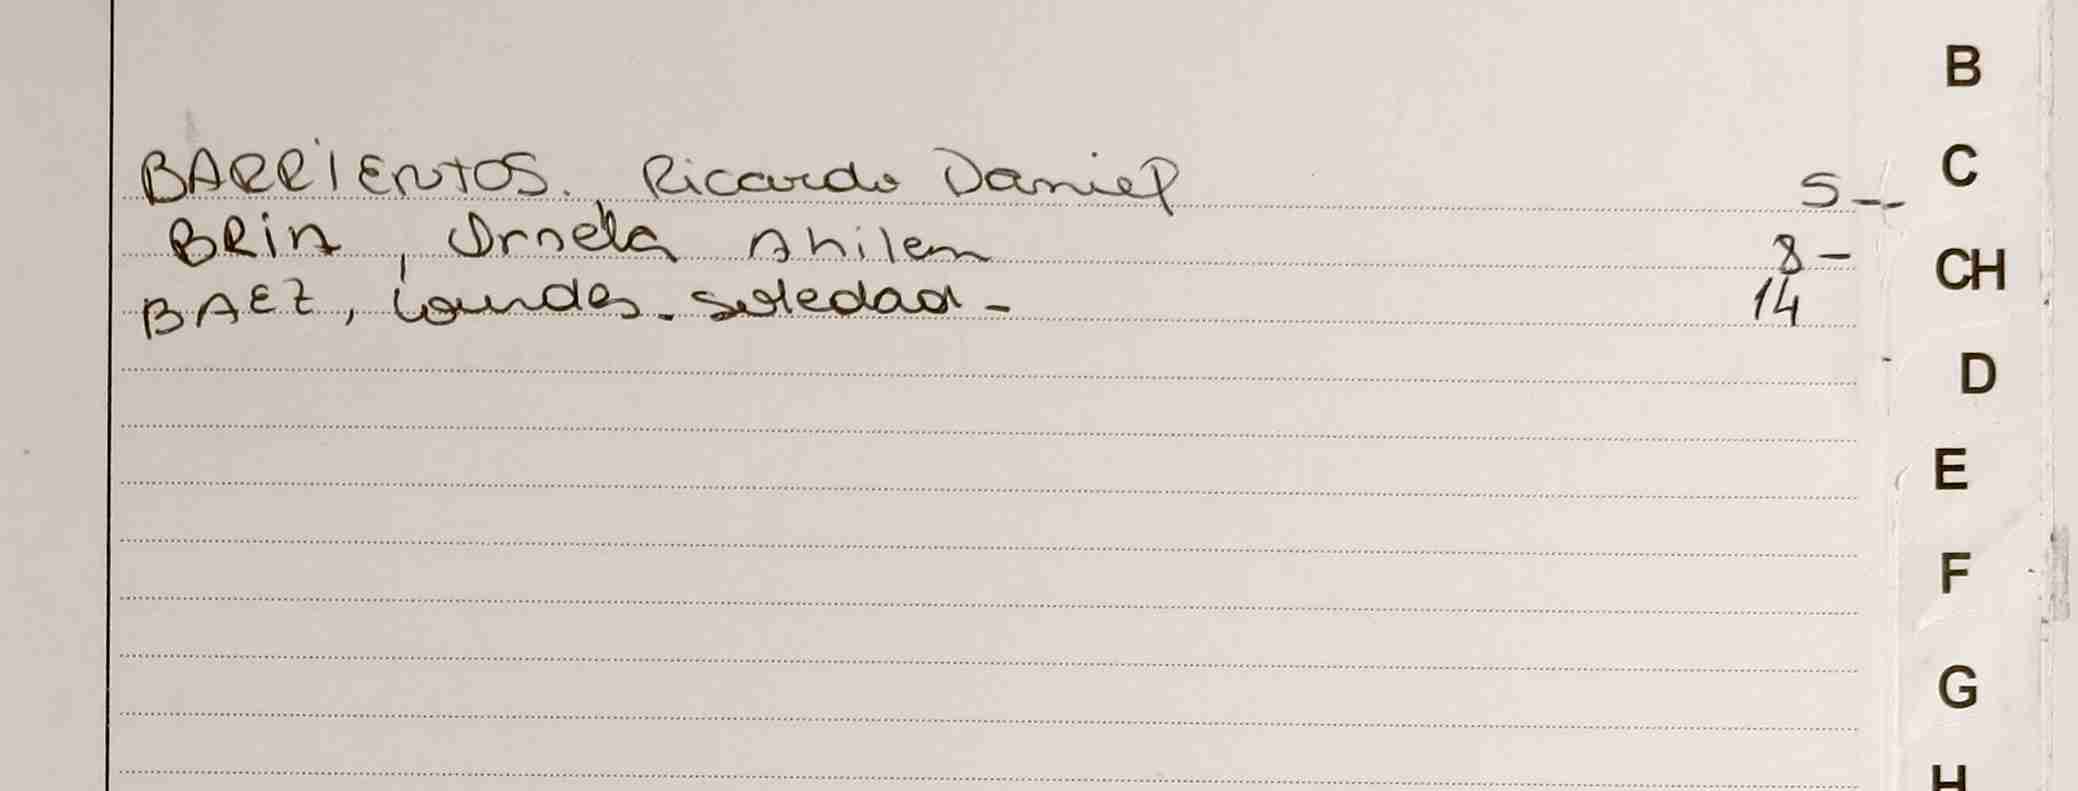 B
C
BARRIENTOS. Ricardo Daniel 5--
BRIN, Ornela Ahilen 8-
CH
BAEZ, Lourdes. Soledad - 14
D
E
F
G
H